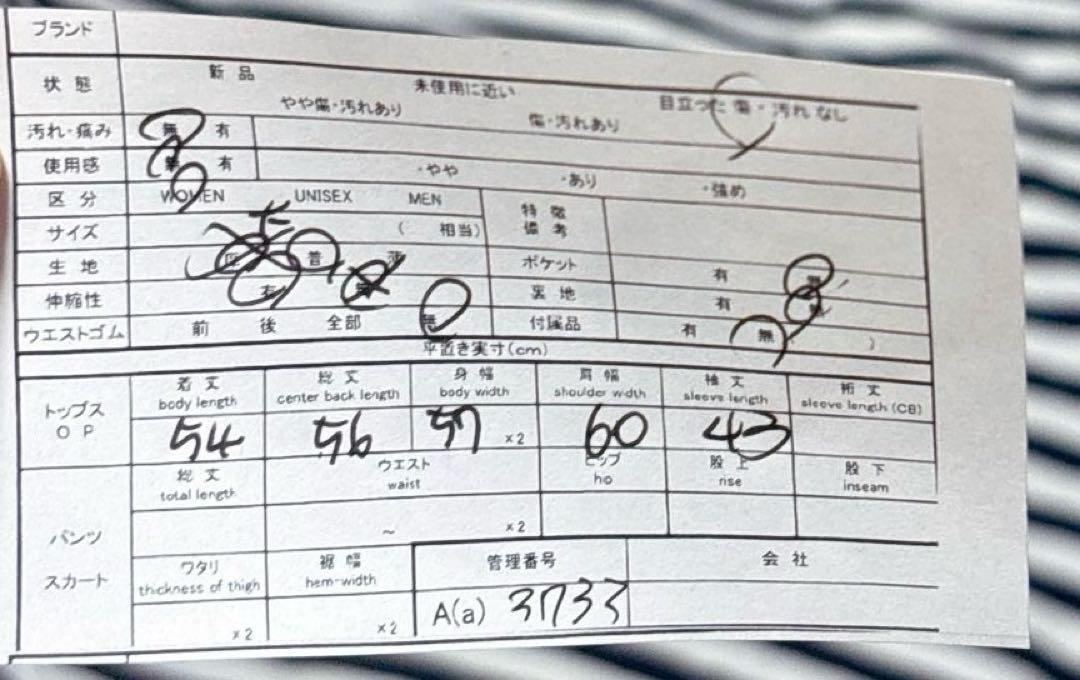 ブランド
状態 新品 未使用に近い 目立った傷・汚れなし
やや傷・汚れあり 傷・汚れあり
汚れ・痛み 無 有
使用感 無 有 ・やや ・あり ・強め
区分 WOMEN UNISEX MEN 特徴
サイズ ( 相当) 備考
生地 普 薄 ポケット 有 無
伸縮性 有 無 裏地 有 無
ウエストゴム 前 後 全部 無 付属品 有 無 )
平置き実寸(cm)
トップス OP
着丈 総丈 身幅 肩幅 袖丈 裄丈
body length center back length body width shoulder wdth sleeve length sleeve length (CB)
54 56 57 ×2 60 43
パンツ スカート
総丈 ウエスト ヒップ 股上 股下
total length waist hip rise inseam
~ ×2
ワタリ 裾幅 管理番号 会社
thickness of thigh hem-width
×2 ×2 A(a) 3733